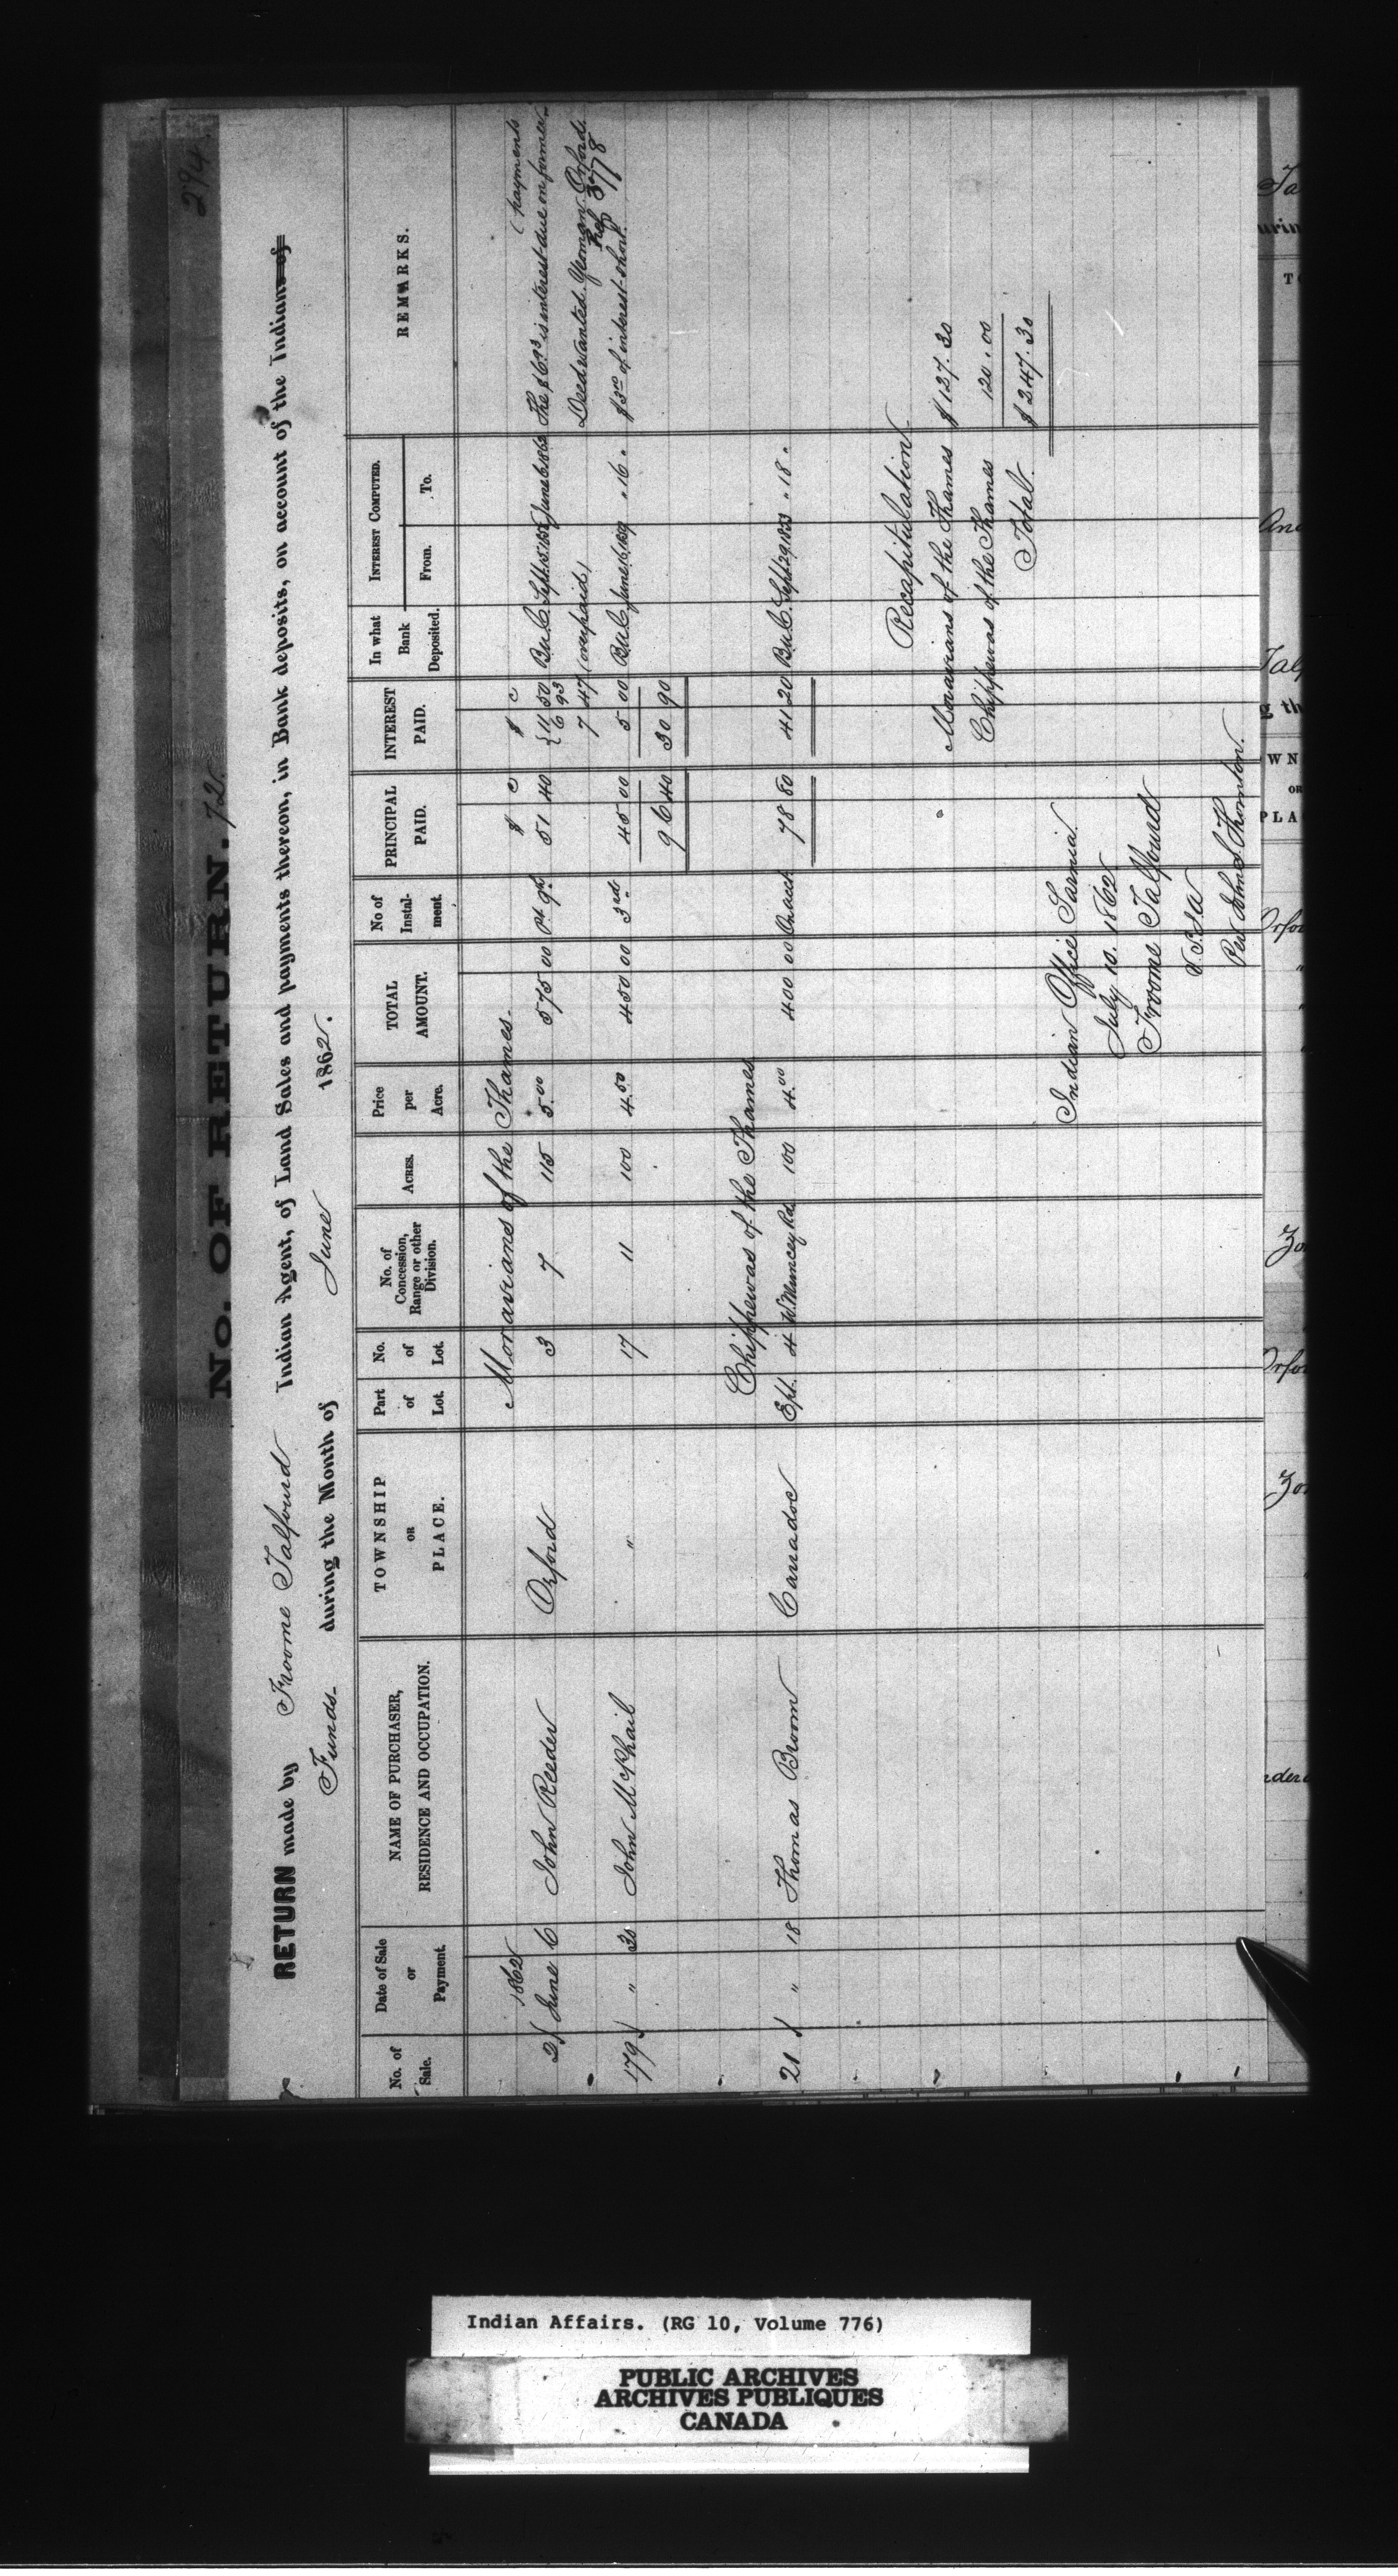 294
NO. OF RETURN. 72.
RETURN made by Froome Talfourd Indian Agent, of Land Sales and payments thereon, in Bank deposits, on account of the Indians of
Funds- during the Month of June 1862.
No. of Sale. | Date of Sale or Payment. | NAME OF PURCHASER, RESIDENCE AND OCCUPATION. | TOWNSHIP OR PLACE. | Part of Lot. | No. of Lot. | No. of Concession, Range or other Division. | ACRES. | Price per Acre. | TOTAL AMOUNT. | No of Instalment. | PRINCIPAL PAID. | INTEREST PAID. | In what Bank Deposited. | INTEREST COMPUTED. From. To. | REMARKS.
1862 Moravians of the Thames. $ c $ c (payments
2 June 6 John Reeder Orford 3 7 115 5.00 575 00 Pt 9th 51 40 { 11 50 B.U.C. Sept. 15. June 6. 1862 The $6.93 is interest due on former
6 93
7 47 (overpaid) Deed wanted. Yeoman. Orford.
Ref 3778
179 " John McPhail " 17 11 100 4.50 450 00 3rd 45 00 5 00 B.U.C. June 16, 1859 " 16 " of interest short.
96 40 30 90
Chippewas of the Thames
21 " 18 Thomas Broom Caradoc E pt. 4 W. Muncey Rd. 100 4.00 400 00 On acct 78 80 41 20 B.U.C. Sept 29, 1853 " 18 "
Recapitulation.
Moravians of the Thames $127.30
Chippewas of the Thames 120.00
Total. $247.30
Indian Office Sarnia.
July 10. 1862
Froome Talfourd
V.S.I.A
Per John Thornton.
Indian Affairs. (RG 10, Volume 776)
PUBLIC ARCHIVES
ARCHIVES PUBLIQUES
CANADA